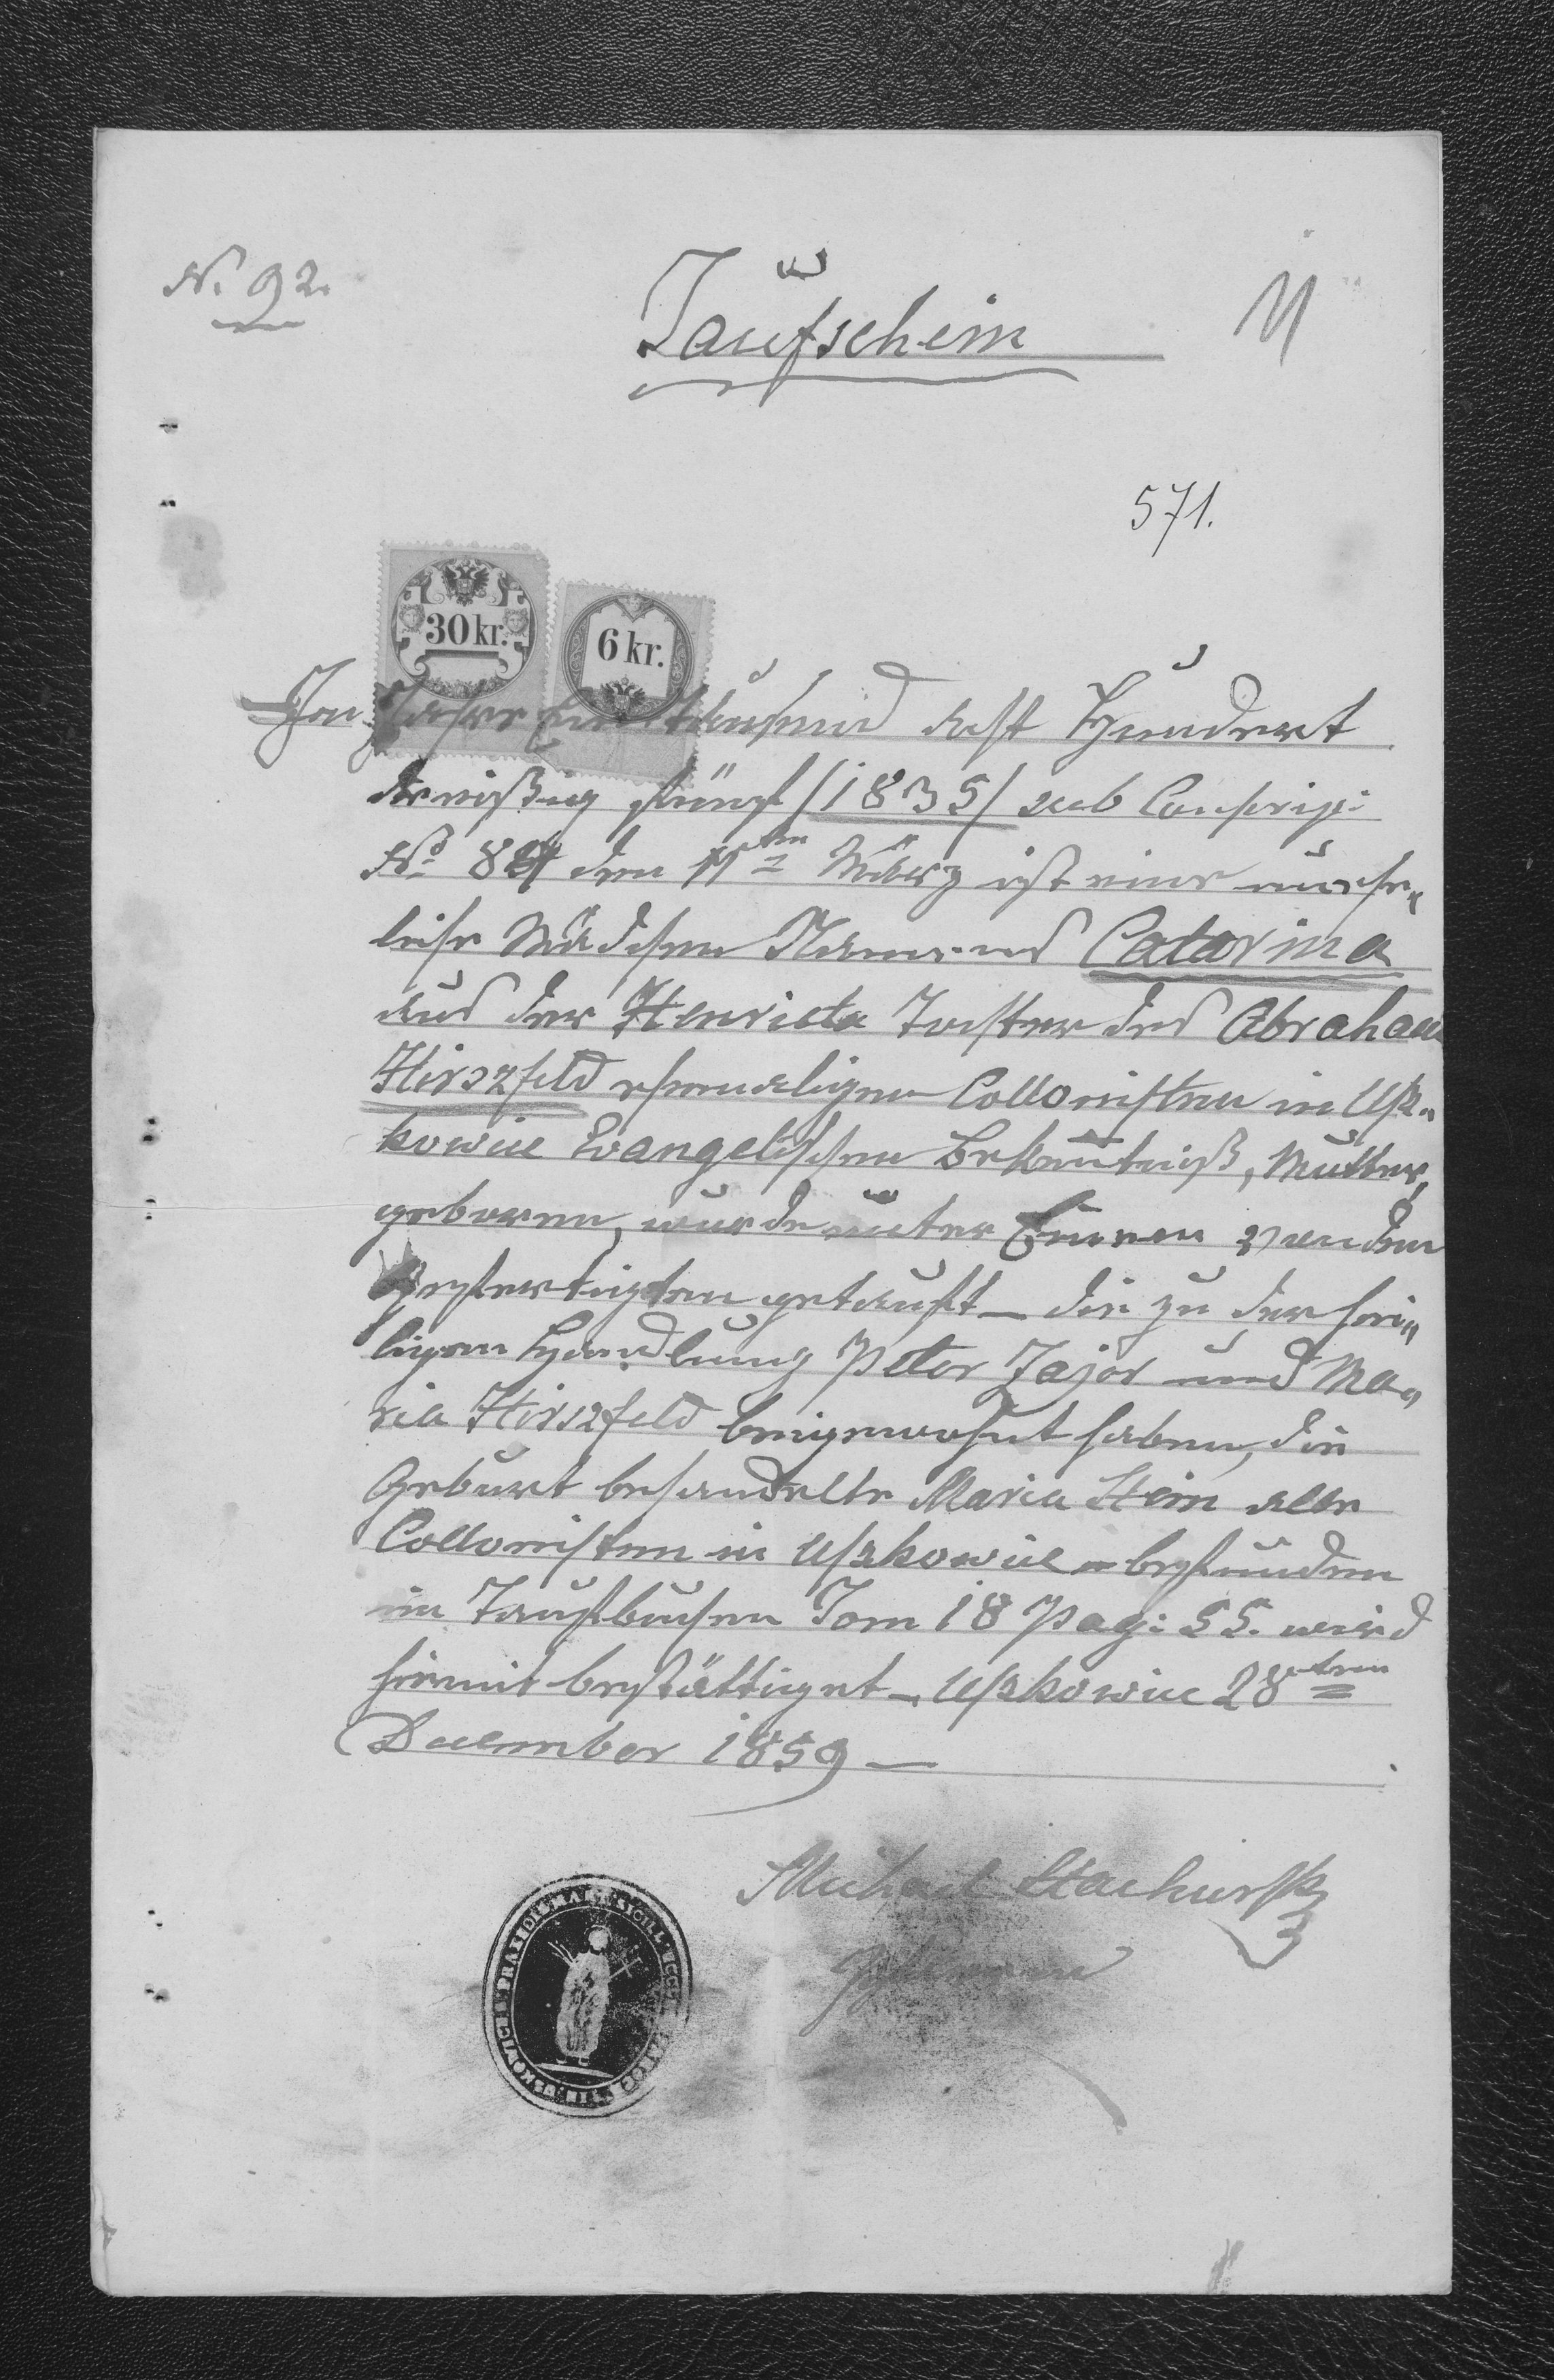 No. 92.
Taufschein
571.
30 kr.
6 kr.
Im Jahre Eintausend acht Hundert
dreißig fünf /1835/ sub Conscrip:
No 84 den 11ten März ist eine unehe„
liche Mädchen Namens Catarina
aus der Henrieta Tochter des Abraham
Hirszfeld ehemaligen Collonisten in Usz„
kowice Evangelischen Bekentniß, Mutter,
geboren, wurde unter von dem
Gefertigten getauft — die zu der hei„
ligen Handlung Peter Zajor und Ma„
ria Hirszfeld beigewohnt haben, die
Geburt behandelte Maria Stein alle
Collonisten in Uszkowice – befunden
im Taufbuchen Tom 18 Pag: 55. wird
hiemit bestättiget – Uszkowice 28ten
December 1859 —
Michael Stachurski
Pfarrer
SIGILL: ECCL: IN USZKOWICE PRAESIDIS